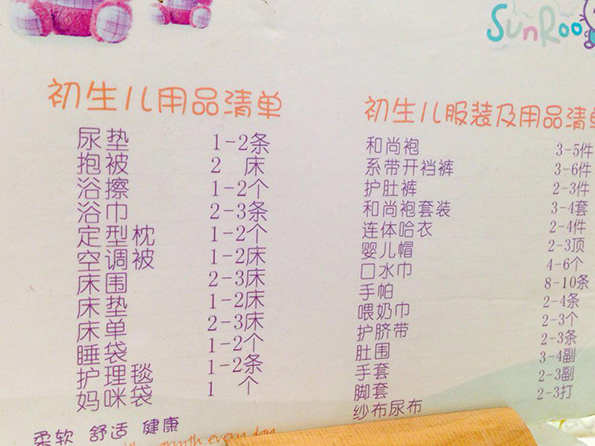 SunRoo
初生儿用品清单
尿垫 1-2条
抱被 2 床
浴擦 1-2个
浴巾 2-3条
定型枕 1-2个
空调被 1-2床
床围 2-3床
床垫 1-2床
床单 2-3床
睡袋 1-2个
护理毯 1-2条
妈咪袋 1 个
柔软 舒适 健康
every day
初生儿服装及用品清单
和尚袍 3-5件
系带开裆裤 3-6件
护肚裤 2-3件
和尚袍套装 3-4套
连体哈衣 2-4件
婴儿帽 2-3顶
口水巾 4-6个
手帕 8-10条
喂奶巾 2-4条
护脐带 2-3个
肚围 2-3条
手套 3-4副
脚套 2-3副
纱布尿布 2-3打